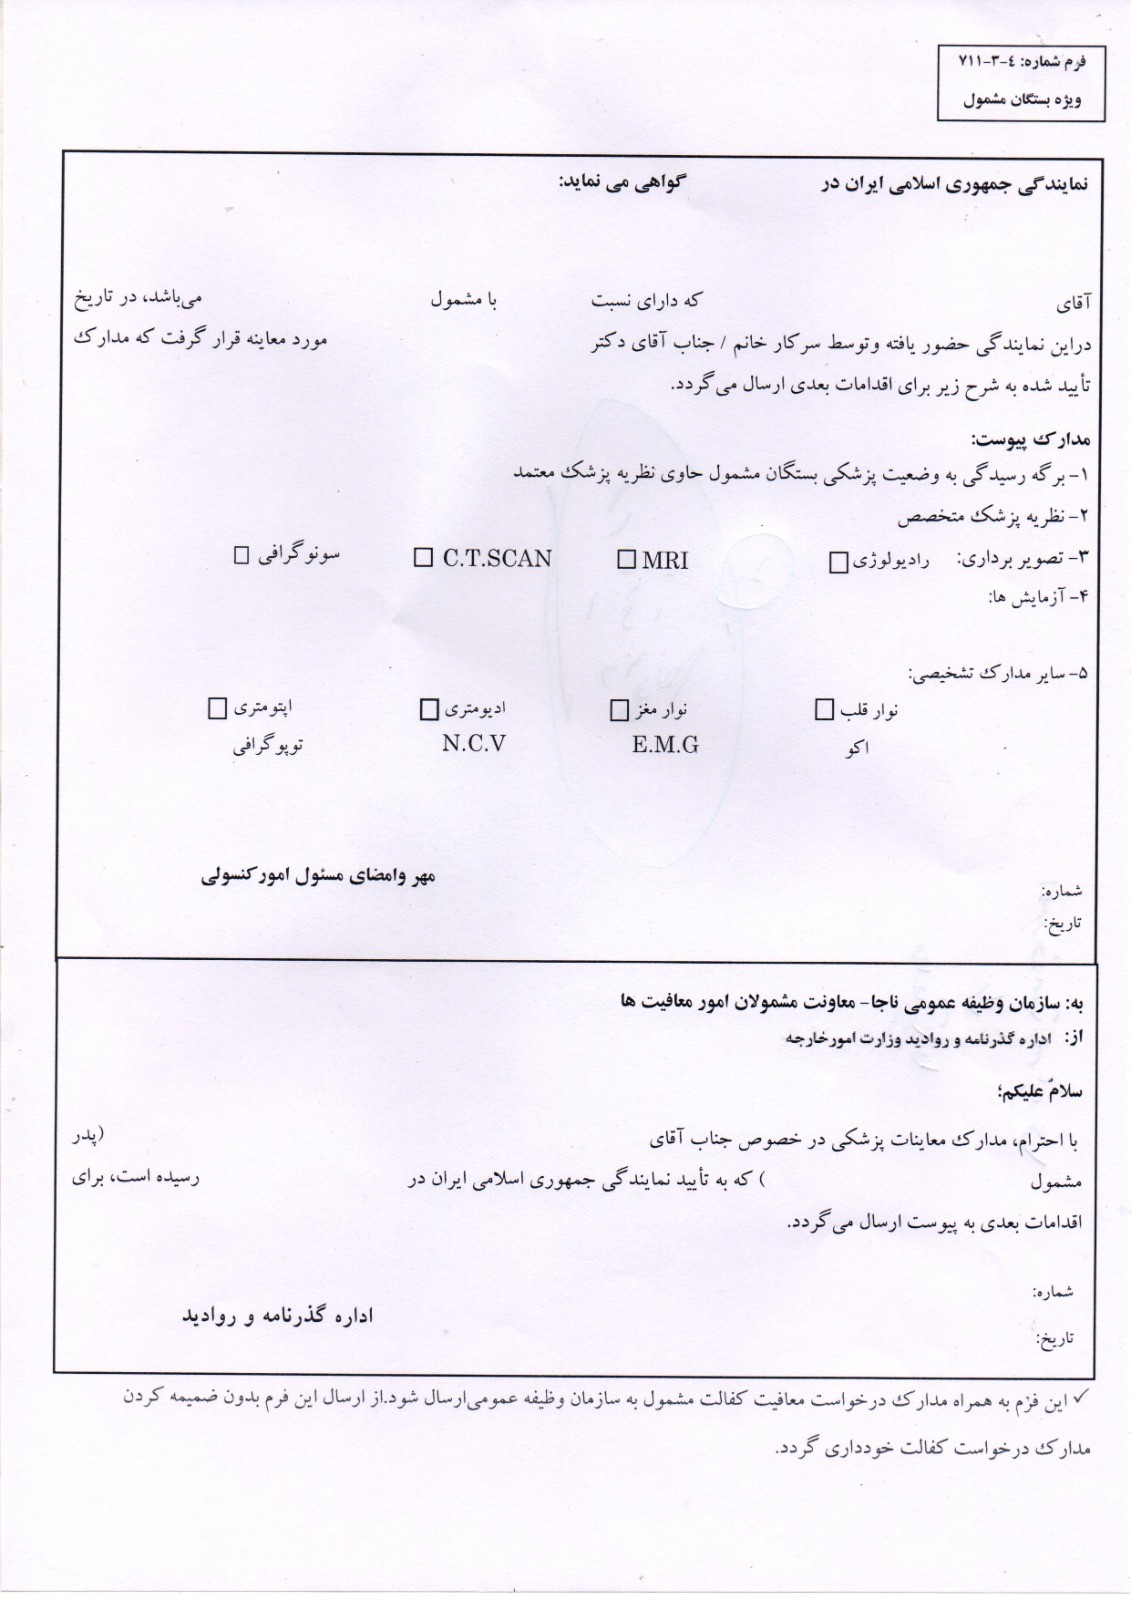 فرم شماره: ٤-٣-٧١١
ویژه بستگان مشمول
نمایندگی جمهوری اسلامی ایران در گواهی می نماید:
آقای که دارای نسبت با مشمول می‌باشد، در تاریخ
دراین نمایندگی حضور یافته وتوسط سرکار خانم / جناب آقای دکتر مورد معاینه قرار گرفت که مدارک
تأیید شده به شرح زیر برای اقدامات بعدی ارسال می‌گردد.
مدارک پیوست:
۱- برگه رسیدگی به وضعیت پزشکی بستگان مشمول حاوی نظریه پزشک معتمد
۲- نظریه پزشک متخصص
۳- تصویر برداری: رادیولوژی □ MRI □ C.T.SCAN □ سونوگرافی □
۴- آزمایش ها:
۵- سایر مدارک تشخیصی:
نوار قلب □ نوار مغز □ ادیومتری □ اپتومتری □
اکو E.M.G N.C.V توپوگرافی
مهر وامضای مسئول امورکنسولی
شماره:
تاریخ:
به: سازمان وظیفه عمومی ناجا- معاونت مشمولان امور معافیت ها
از: اداره گذرنامه و روادید وزارت امورخارجه
سلامٌ علیکم؛
با احترام، مدارک معاینات پزشکی در خصوص جناب آقای (پدر
مشمول ) که به تأیید نمایندگی جمهوری اسلامی ایران در رسیده است، برای
اقدامات بعدی به پیوست ارسال می‌گردد.
شماره:
اداره گذرنامه و روادید
تاریخ:
✓ این فرم به همراه مدارک درخواست معافیت کفالت مشمول به سازمان وظیفه عمومی‌ارسال شود.از ارسال این فرم بدون ضمیمه کردن
مدارک درخواست کفالت خودداری گردد.